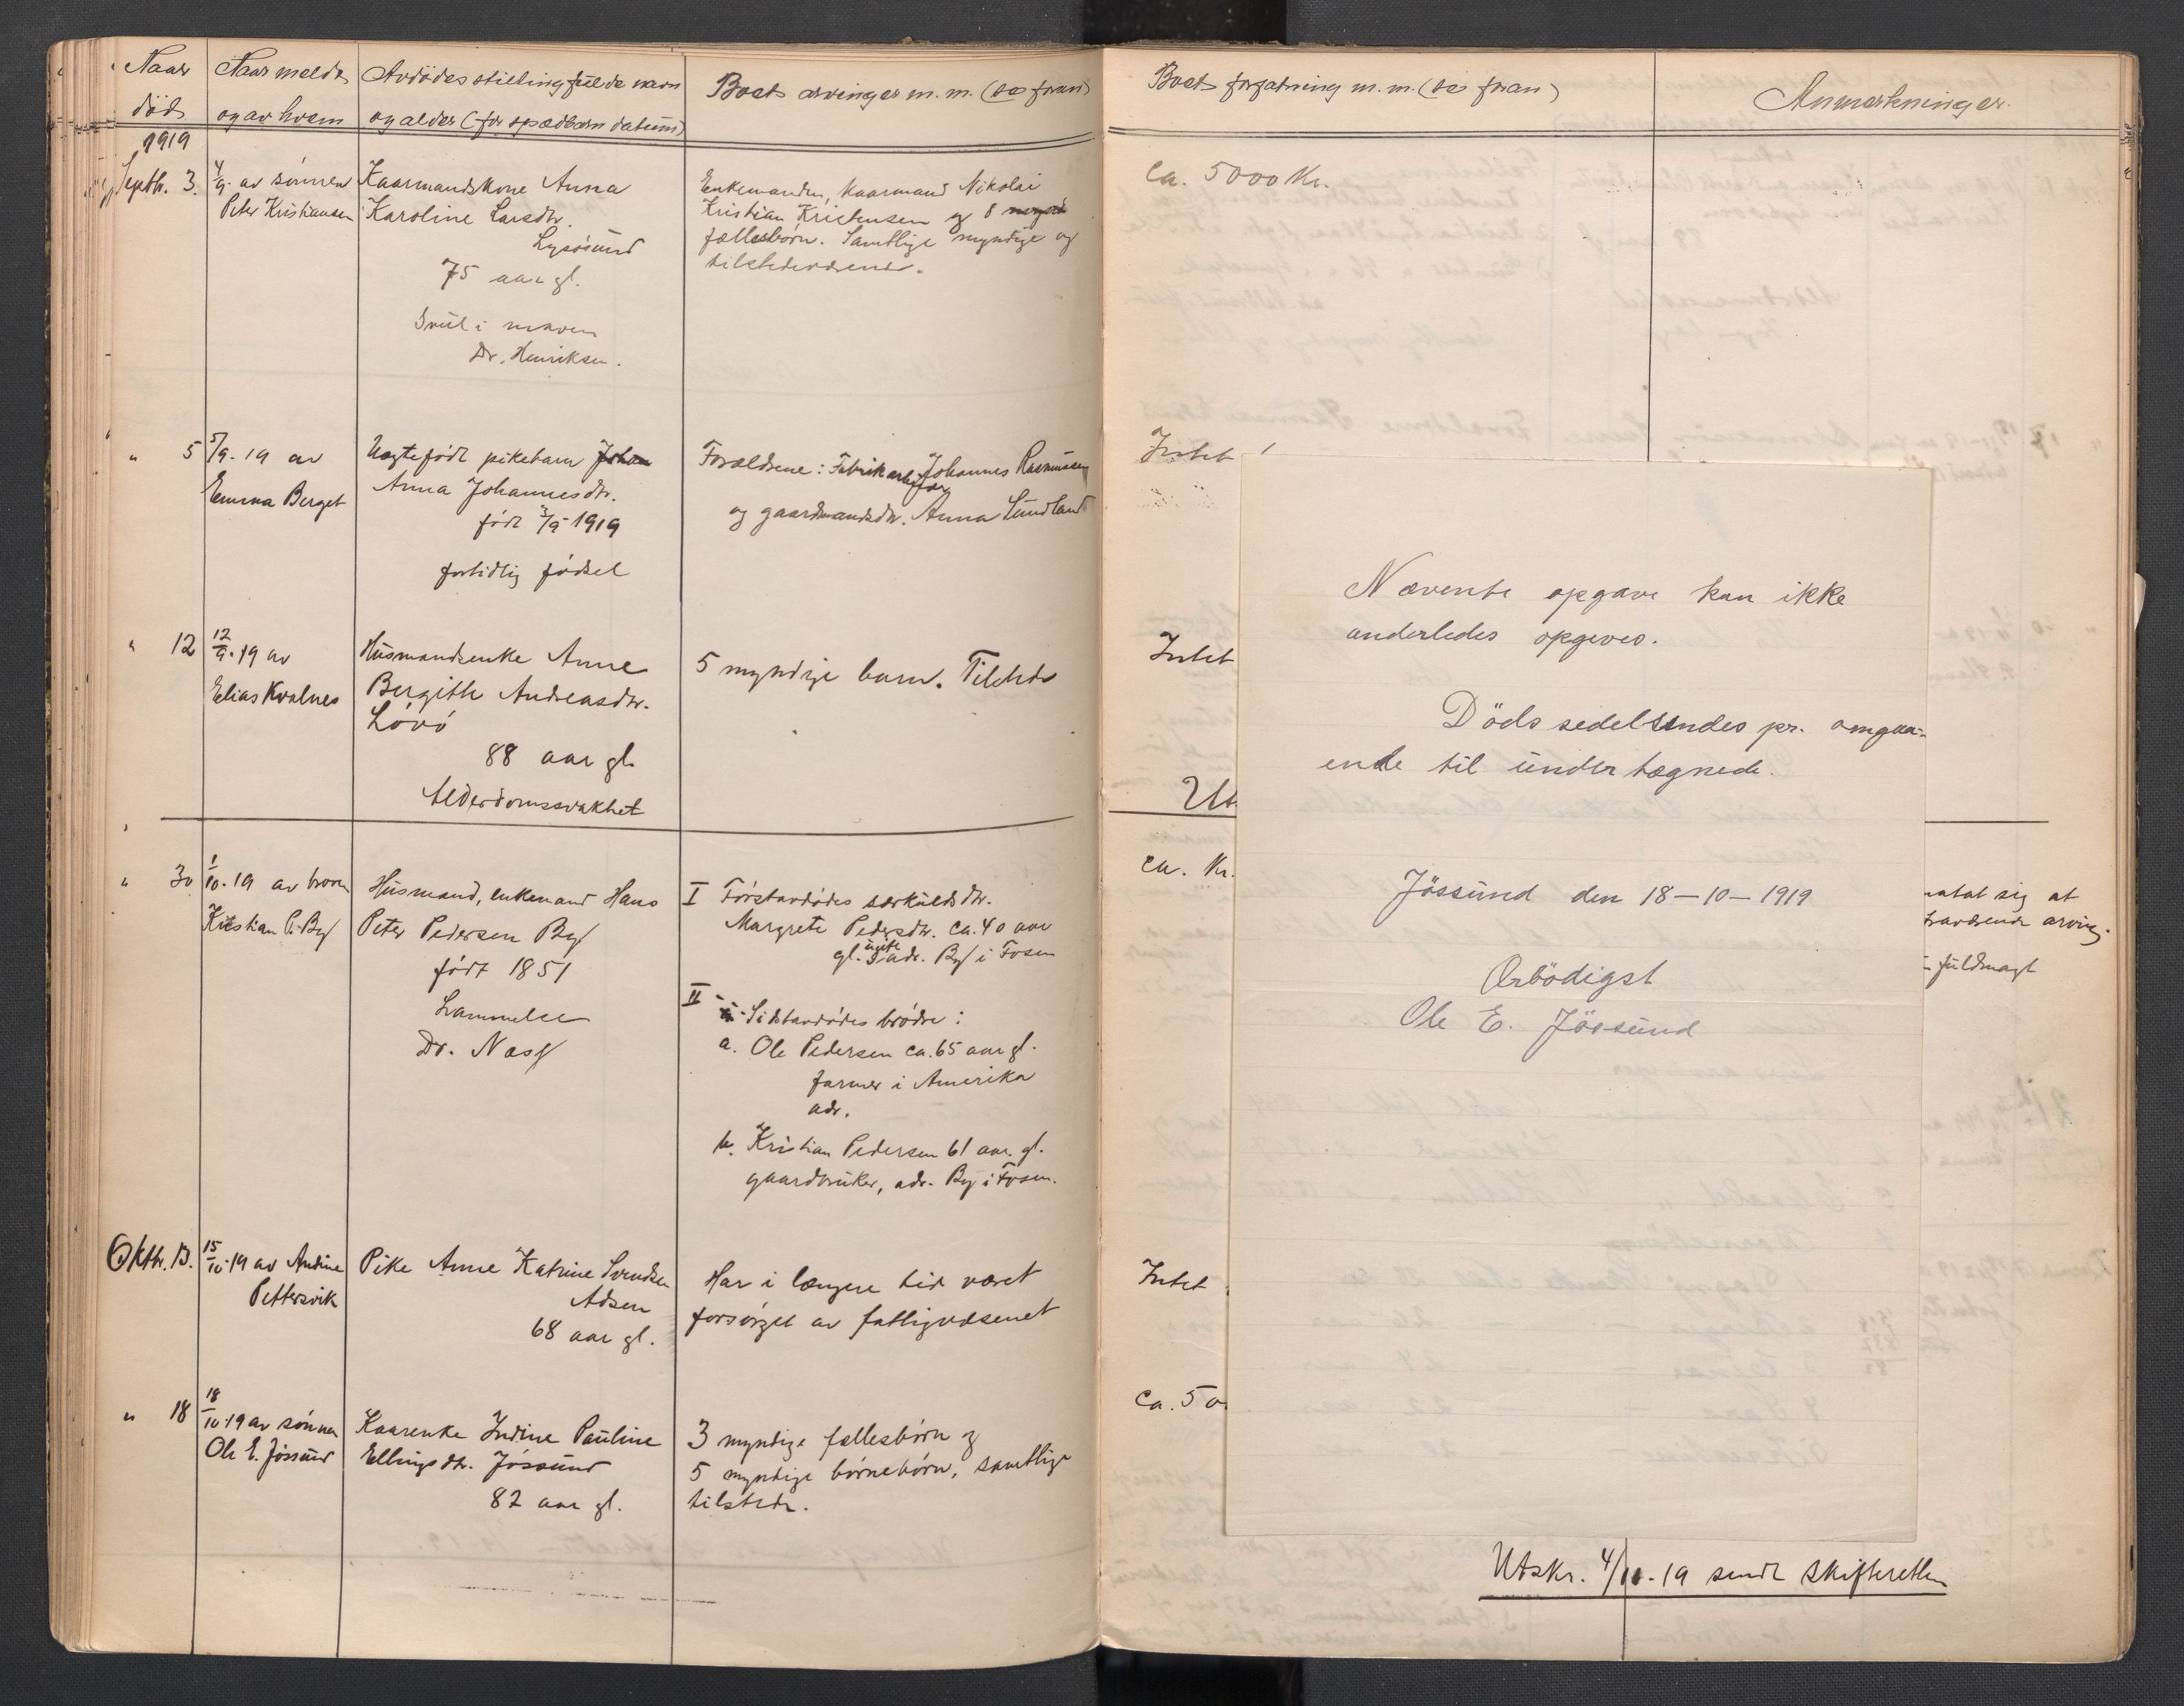 Naar
död
Naar meldt
og av hvem
Avdödes stilling fulde navn
og alder (for spædbarn datum)
Boets arvinger m. m. (se foran)
Boets forfatning m. m. (se foran)
Anmerkninger.
1919
Septbr. 3.
4/9. av sönnen
Peter Kristiansen
Kaarmandskone Anna
Karoline Larsdtr.
Lysösund
75 aar gl.
Svul i maven
Dr. Henriksen.
Enkemanden, kaarmand Nikolai
Kristian Kristensen og 8
fællesbörn. Samtlige myndige og
tilstedeværende.
Ca. 5000 Kr.
" 5
5/9. 19 av
Emma Berget
Uegtefödt pikebarn Johan
Anna Johannesdtr.
födt 3/9 1919
fortidlig födsel
Forældrene: Fabrikarbeider Johannes Rasmussen
og gaardmandsdtr. Anna Sundland
Intet
" 12
12/9. 19 av
Elias Kvalnes
Husmandsenke Anne
Bergithe Andreasdtr.
Lövö
88 aar gl.
Alderdomssvakhet
5 myndige barn. Tilstede
Intet
Ut
" 30
1/10. 19 av broren
Kristian P. By
Husmand, enkemand Hans
Peter Pedersen By
födt 1851
Lammelse
Dr. Næss
I Förstavdödes særkuldsdtr.
Margrete Pedersdtr. ca. 40 aar
gl. ugite adr. By i Fosen
II Sidstavdödes brödre:
a. Ole Pedersen ca. 65 aar gl.
farmer i Amerika
adr.
b. Kristian Pedersen 61 aar gl.
gaardbruker, adr. By i Fosen.
ca. Kr.
matat sig at
arving.
fuldmagt
Oktbr. 13.
15/10. 19 av Andine
Pettersvik
Pike Anne Katrine Svendsen
Adsen
68 aar gl.
Har i længere tid været
forsörget av fattigvæsenet
Intet
" 18
18/10. 19 av sönnen
Ole E. Jössund
Kaarenke Indine Pauline
Ellingsdtr. Jössund
82 aar gl.
3 myndige fællesbörn og
5 myndige börnebörn, samtlige
tilstede.
ca. 50
Nævente opgave kan ikke
anderledes opgeves.
Döds sedel sendes pr. omgaa-
ende til undertegnede.
Jössund den 18-10-1919
Ærbödigst
Ole E. Jössund
Utskr. 4/11. 19 sendt skifteretten